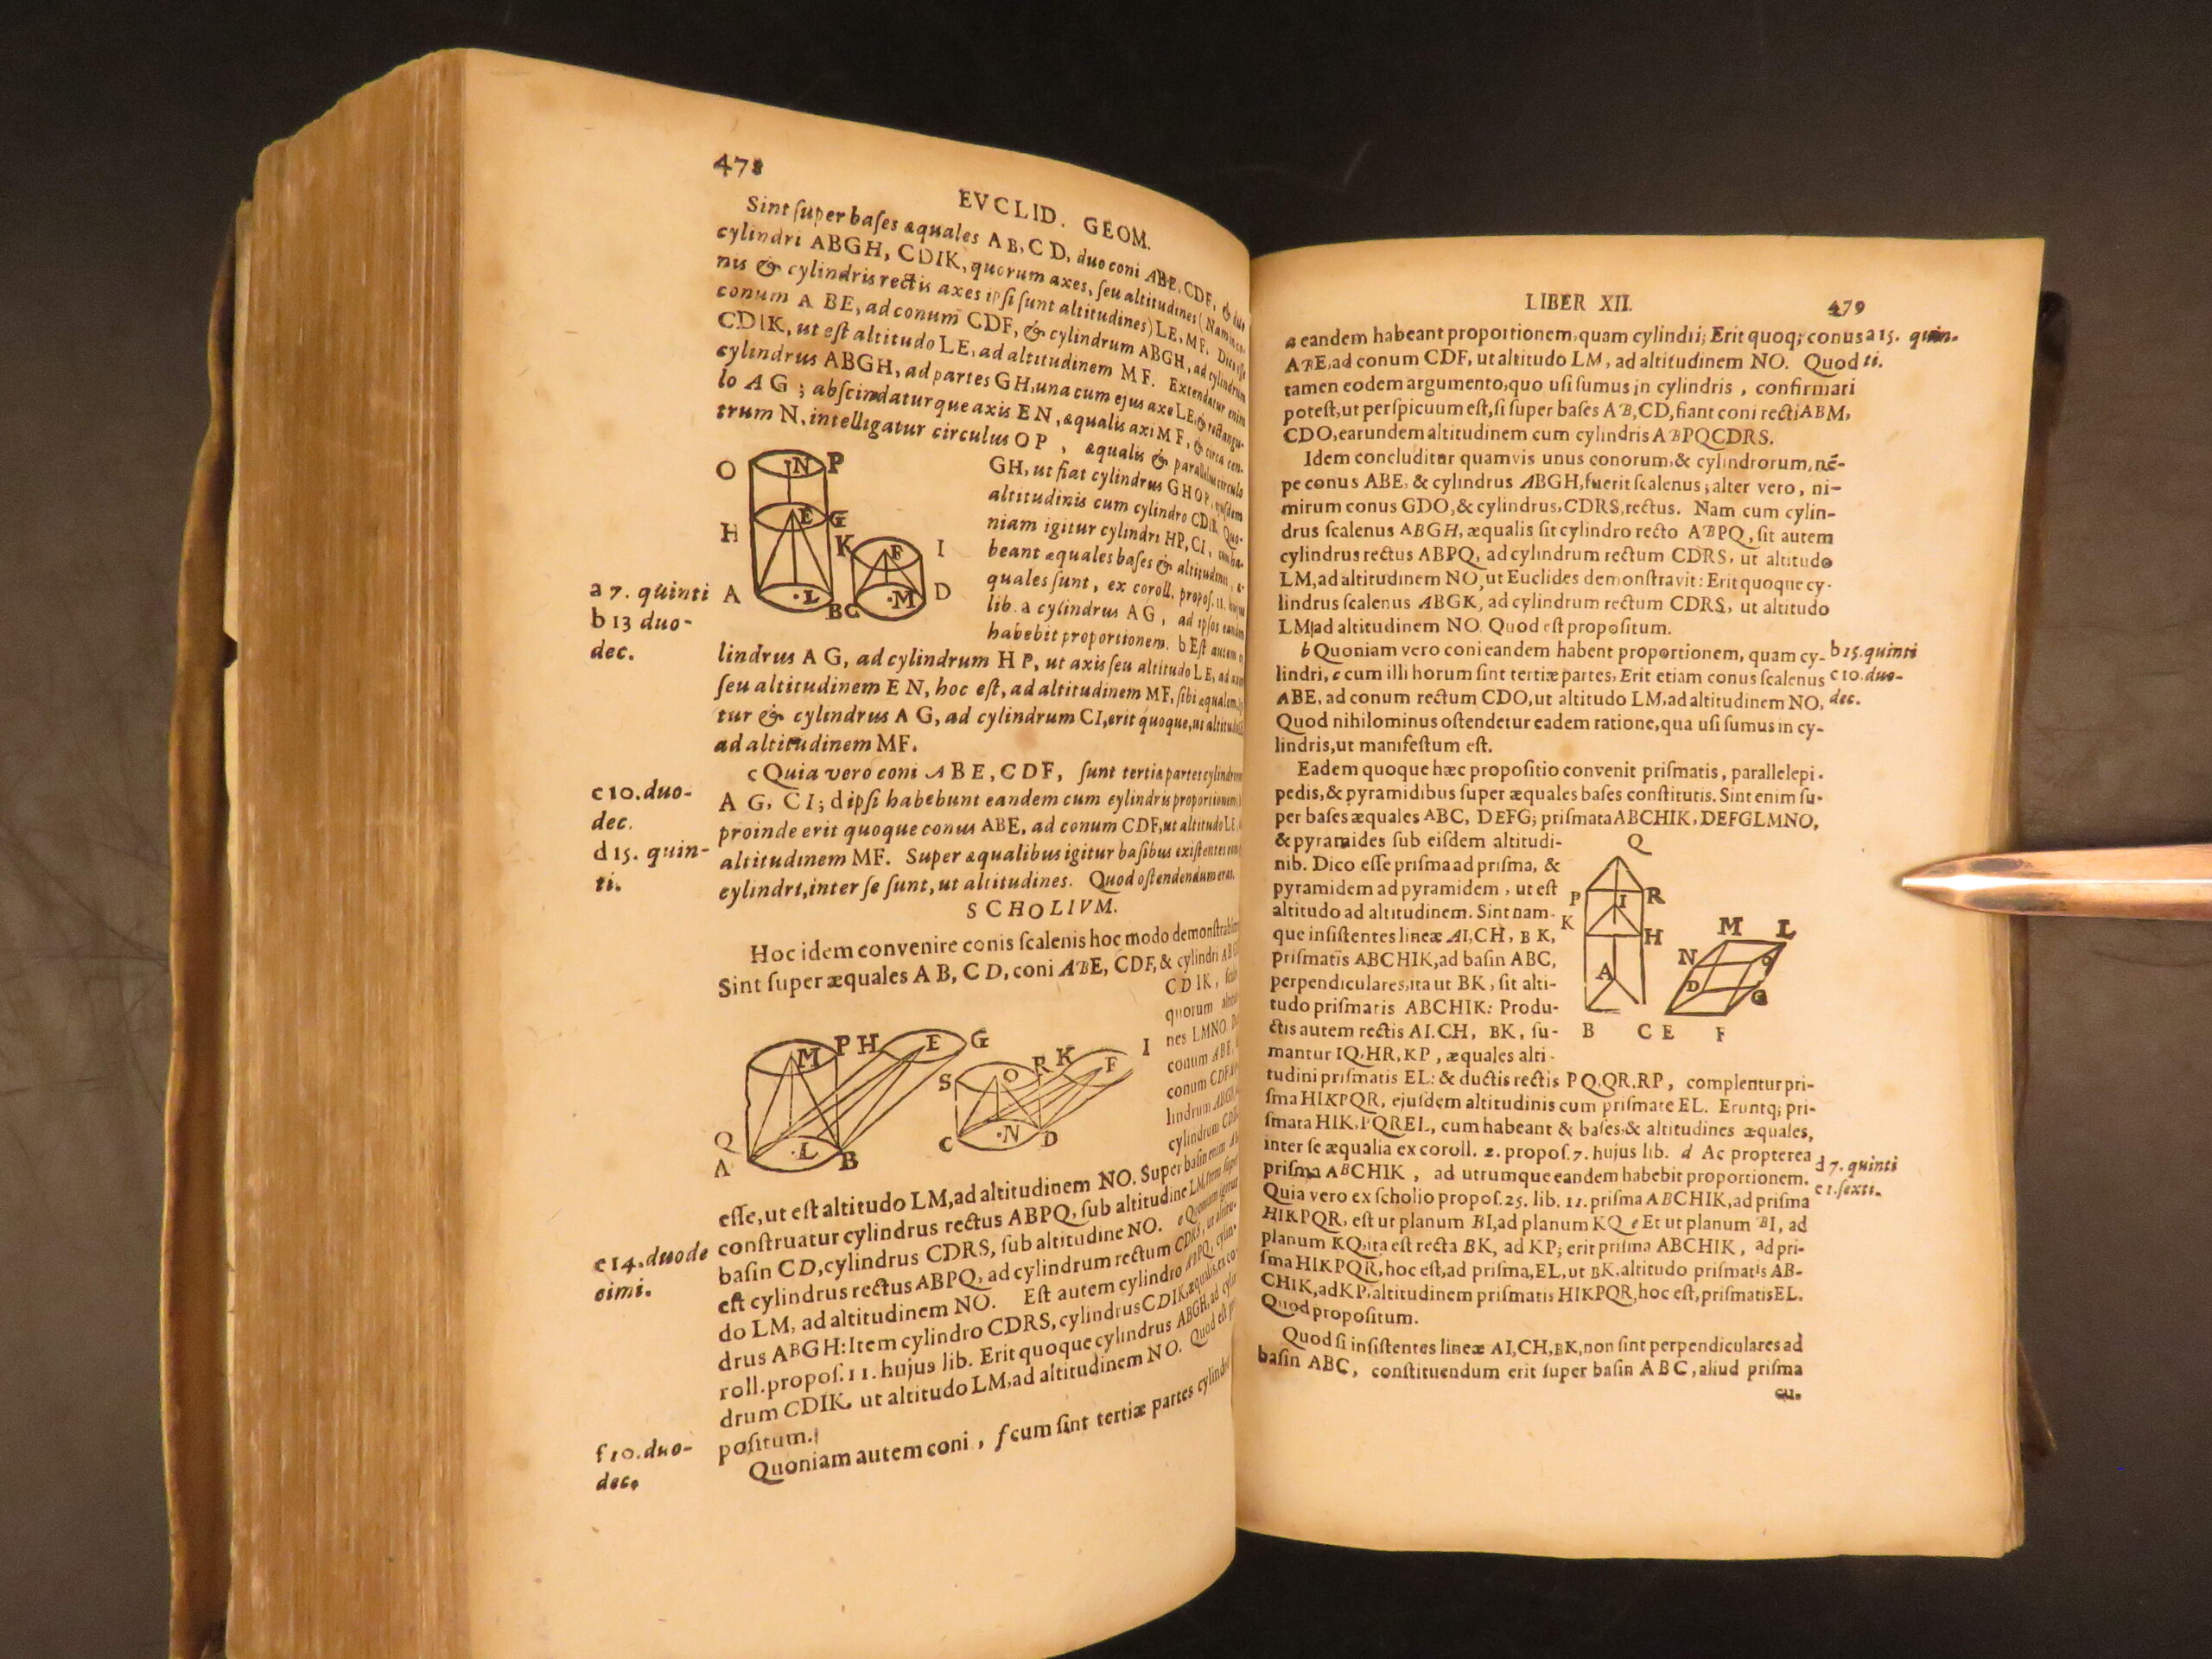 478
EVCLID. GEOM.
Sint ſuper baſes æquales AB, CD, duo coni ABE, CDF, & duo
cylindri ABGH, CDIK, quorum axes, ſeu altitudines (Nam in co-
nis & cylindris rectis axes ipſi ſunt altitudines) LE, MF. Dico eſſe
conum ABE, ad conum CDF, & cylindrum ABGH, ad cylindrum
CDIK, ut eſt altitudo LE, ad altitudinem MF. Extendatur enim
cylindrus ABGH, ad partes GH, una cum ejus axe LE, & rectangu-
lo AG; abſcindaturque axis EN, æqualis axi MF, & circa cen-
trum N, intelligatur circulus OP, æqualis & parallelus circulo
GH, ut fiat cylindrus GHOP, ejuſdem
altitudinis cum cylindro CDIK. Quo-
niam igitur cylindri HP, CI, cum ha-
beant æquales baſes & altitudines, æ-
quales ſunt, ex coroll. propoſ. 11. hujus
lib. a cylindrus AG, ad ipſos eandem
habebit proportionem. b Eſt autem
O N P
E G
H
K F I
A L B C M D
a 7. quinti
b 13 duo-
dec.
lindrus AG, ad cylindrum HP, ut axis ſeu altitudo LE, ad
ſeu altitudinem EN, hoc eſt, ad altitudinem MF, ſibi æqualem.
tur & cylindrus AG, ad cylindrum CI, erit quoque, ut altitudo
ad altitudinem MF.
c Quia vero coni ABE, CDF, ſunt tertia partes cylindrorum
AG, CI; d ipſi habebunt eandem cum cylindris proportionem
proinde erit quoque conus ABE, ad conum CDF, ut altitudo LE
altitudinem MF. Super æqualibus igitur baſibus exiſtentes
cylindri, inter ſe ſunt, ut altitudines. Quod oſtendendum erat.
c 10. duo-
dec.
d 15. quin-
ti.
SCHOLIVM.
Hoc idem convenire conis ſcalenis hoc modo
Sint ſuper æquales AB, CD, coni ABE, CDF, & cylindri
CDIK,
quorum
nes LMNO.
conum ABE,
conum
lindrum
cylindrum
M P H E G
S O R K F I
Q
A L B C N D
eſſe, ut eſt altitudo LM, ad altitudinem NO. Super baſin enim
conſtruatur cylindrus rectus ABPQ, ſub altitudine LM,
baſin CD, cylindrus CDRS, ſub altitudine NO. e Quoniam igitur
eſt cylindrus rectus ABPQ, ad cylindrum rectum CDRS, ut altitu-
do LM, ad altitudinem NO. Eſt autem cylindro ABPQ, cylin-
drus ABGH: Item cylindro CDRS, cylindrus CDIK, æqualis, ex co-
roll. propoſ. 11. hujus lib. Erit quoque cylindrus ABGH, ad
drum CDIK, ut altitudo LM, ad altitudinem NO. Quod eſt
poſitum.
Quoniam autem coni, f cum ſint tertiæ partes
e 14. duode
cimi.
f 10. duo-
dec.
LIBER XII.
479
a eandem habeant proportionem, quam cylindri; Erit quoq; conus
ABE, ad conum CDF, ut altitudo LM, ad altitudinem NO. Quod
tamen eodem argumento, quo uſi ſumus in cylindris, confirmari
poteſt, ut perſpicuum eſt, ſi ſuper baſes AB, CD, fiant coni recti ABM,
CDO, earundem altitudinem cum cylindris ABPQCDRS.
a 15. quin-
ti.
Idem concluditur quamvis unus conorum, & cylindrorum, nẽ-
pe conus ABE, & cylindrus ABGH, fuerit ſcalenus; alter vero, ni-
mirum conus GDO, & cylindrus, CDRS, rectus. Nam cum cylin-
drus ſcalenus ABGH, æqualis ſit cylindro recto ABPQ, ſit autem
cylindrus rectus ABPQ, ad cylindrum rectum CDRS, ut altitudo
LM, ad altitudinem NO, ut Euclides demonſtravit: Erit quoque cy-
lindrus ſcalenus ABGK, ad cylindrum rectum CDRS, ut altitudo
LM, ad altitudinem NO. Quod eſt propoſitum.
b Quoniam vero coni eandem habent proportionem, quam cy-
lindri, c cum illi horum ſint tertiæ partes, Erit etiam conus ſcalenus
ABE, ad conum rectum CDO, ut altitudo LM, ad altitudinem NO,
Quod nihilominus oſtendetur eadem ratione, qua uſi ſumus in cy-
lindris, ut manifeſtum eſt.
b 15. quinti
c 10. duo-
dec.
Eadem quoque hæc propoſitio convenit priſmatis, parallelepi-
pedis, & pyramidibus ſuper æquales baſes conſtitutis. Sint enim ſu-
per baſes æquales ABC, DEFG; priſmata ABCHIK, DEFGLMNO,
& pyramides ſub eiſdem altitudi-
nib. Dico eſſe priſma ad priſma, &
pyramidem ad pyramidem, ut eſt
altitudo ad altitudinem. Sint nam-
que inſiſtentes lineæ AI, CH, BK,
priſmatis ABCHIK, ad baſin ABC,
perpendiculares, ita ut BK, ſit alti-
tudo priſmatis ABCHIK: Produ-
ctis autem rectis AI. CH, BK, ſu-
mantur IQ, HR, KP, æquales alti-
Q
P I R
K H M L
N O
A D G
B C E F
tudini priſmatis EL: & ductis rectis PQ. QR. RP, complentur pri-
ſma HIKPQR, ejuſdem altitudinis cum priſmate EL. Eruntq; pri-
ſmata HIK, PQREL, cum habeant & baſes, & altitudines æquales,
inter ſe æqualia ex coroll. 2. propoſ. 7. hujus lib. d Ac propterea
priſma ABCHIK, ad utrumque eandem habebit proportionem.
Quia vero ex ſcholio propoſ. 25. lib. 11. priſma ABCHIK, ad priſma
HIKPQR, eſt ut planum BI, ad planum KQ e Et ut planum BI, ad
planum KQ, ita eſt recta BK, ad KP; erit priſma ABCHIK, ad pri-
ſma HIKPQR, hoc eſt, ad priſma, EL, ut BK, altitudo priſmatis AB-
CHIK, ad KP, altitudinem priſmatis HIKPQR, hoc eſt, priſmatis EL.
Quod propoſitum.
d 7. quinti
e 1. ſexti.
Quod ſi inſiſtentes lineæ AI, CH, BK, non ſint perpendiculares ad
baſin ABC, conſtituendum erit ſuper baſin ABC, aliud priſma
cu-